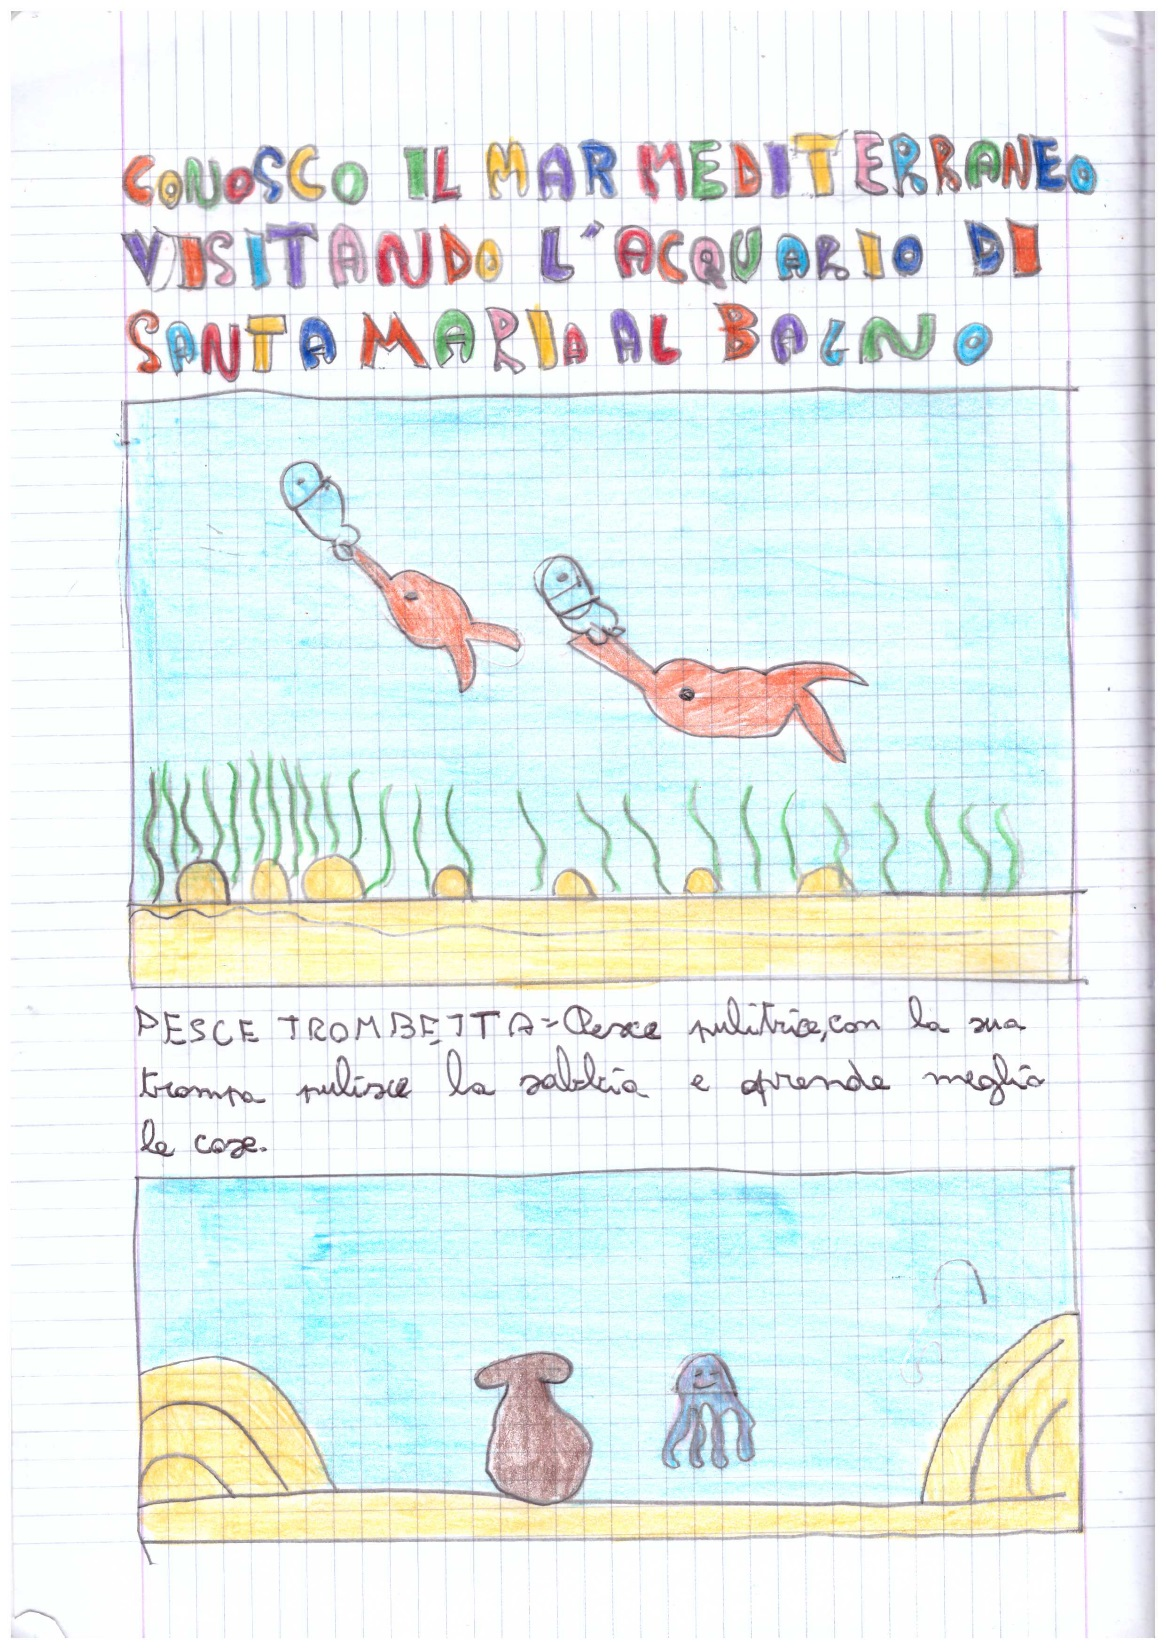 CONOSCO IL MAR MEDITERRANEO
VISITANDO L'ACQUARIO DI
SANTA MARIA AL BAGNO
PESCE TROMBETTA= Pesce pulitrice, con la sua
trompa pulisce la sabbia e aprende meglio
le cose.